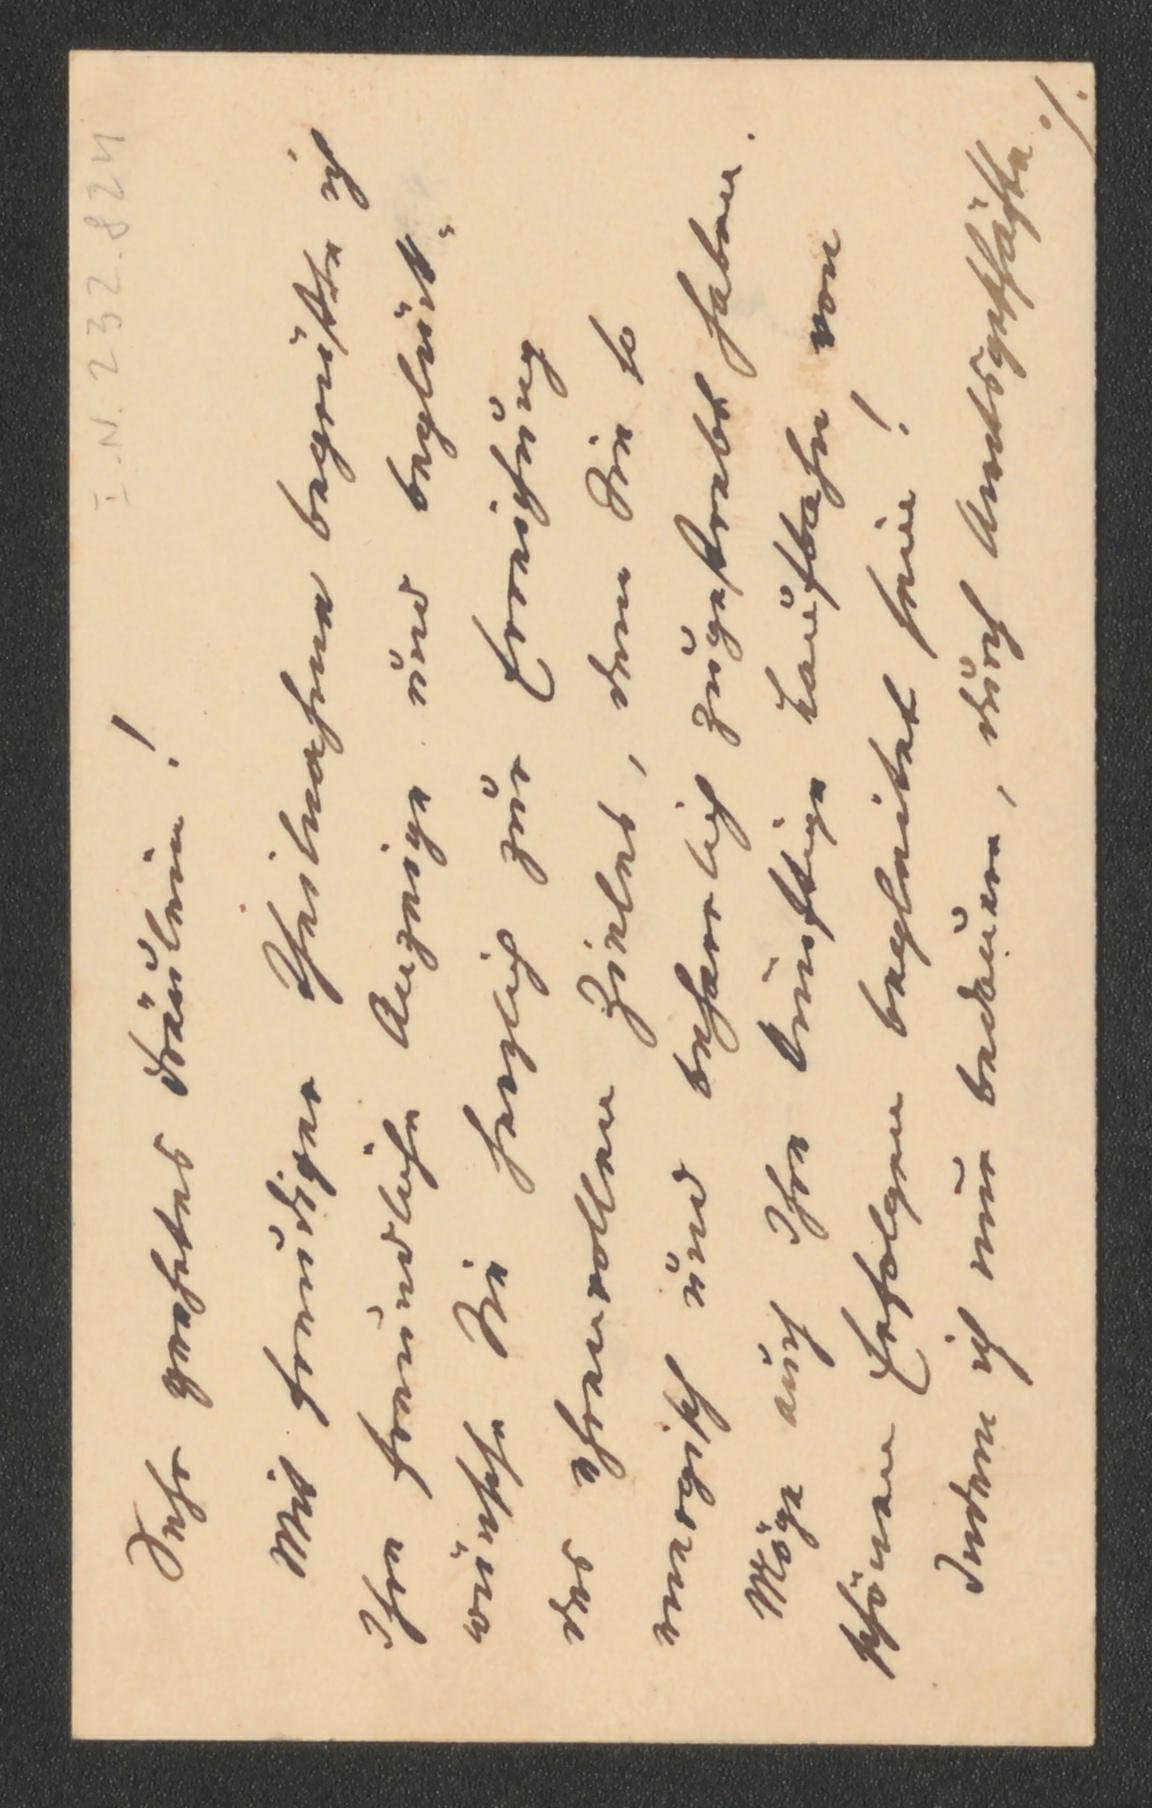 I.N. 232.824
Sehr geehrtes Fräulein!
Mit freudiger Theilnahme begrüßte ich
Ihre freundliche Anzeige und beglück-
wünsche Sie herzlich zur Erreichung
des ehrenvollen Zieles, dem Sie so
energisch und beharrlich zugestrebt haben.
Möge auch Ihre künftige Laufbahn von
schönen Erfolgen begleitet sein!
Indem ich nur bedauere, durch Amtsgeschäfte
./.